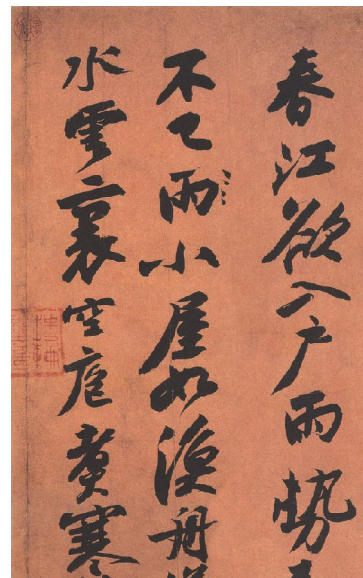 春江欲入戶雨勢
不已雨小屋如漁舟
水雲裏空庖煮寒